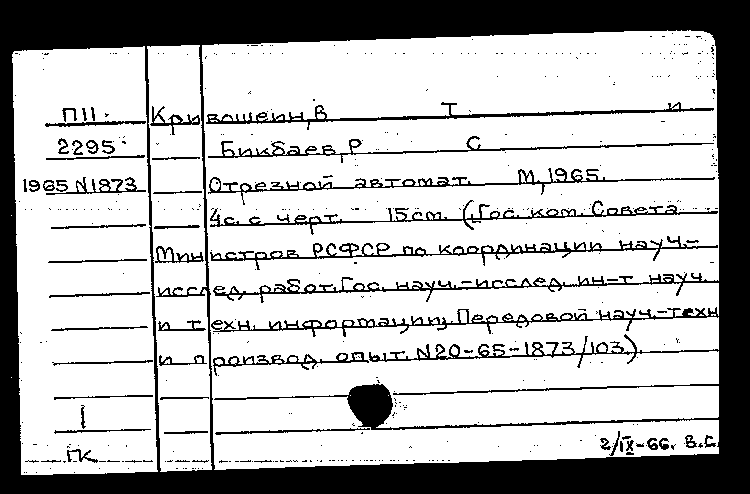 П11 Кривошеин, В Т и
2295 Бикбаев, Р С
1965 N1873 Отрезной автомат. М, 1965.
4с. с черт. 15 см. (Гос. ком. Совета
Министров РСФСР по координации науч.-
исслед. работ. Гос. науч.-исслед. ин-т науч.
и техн. информации. Передовой науч.-техн
и производ. опыт. N20-65-1873/103).
I
ГК 2/IX-66. В.С.